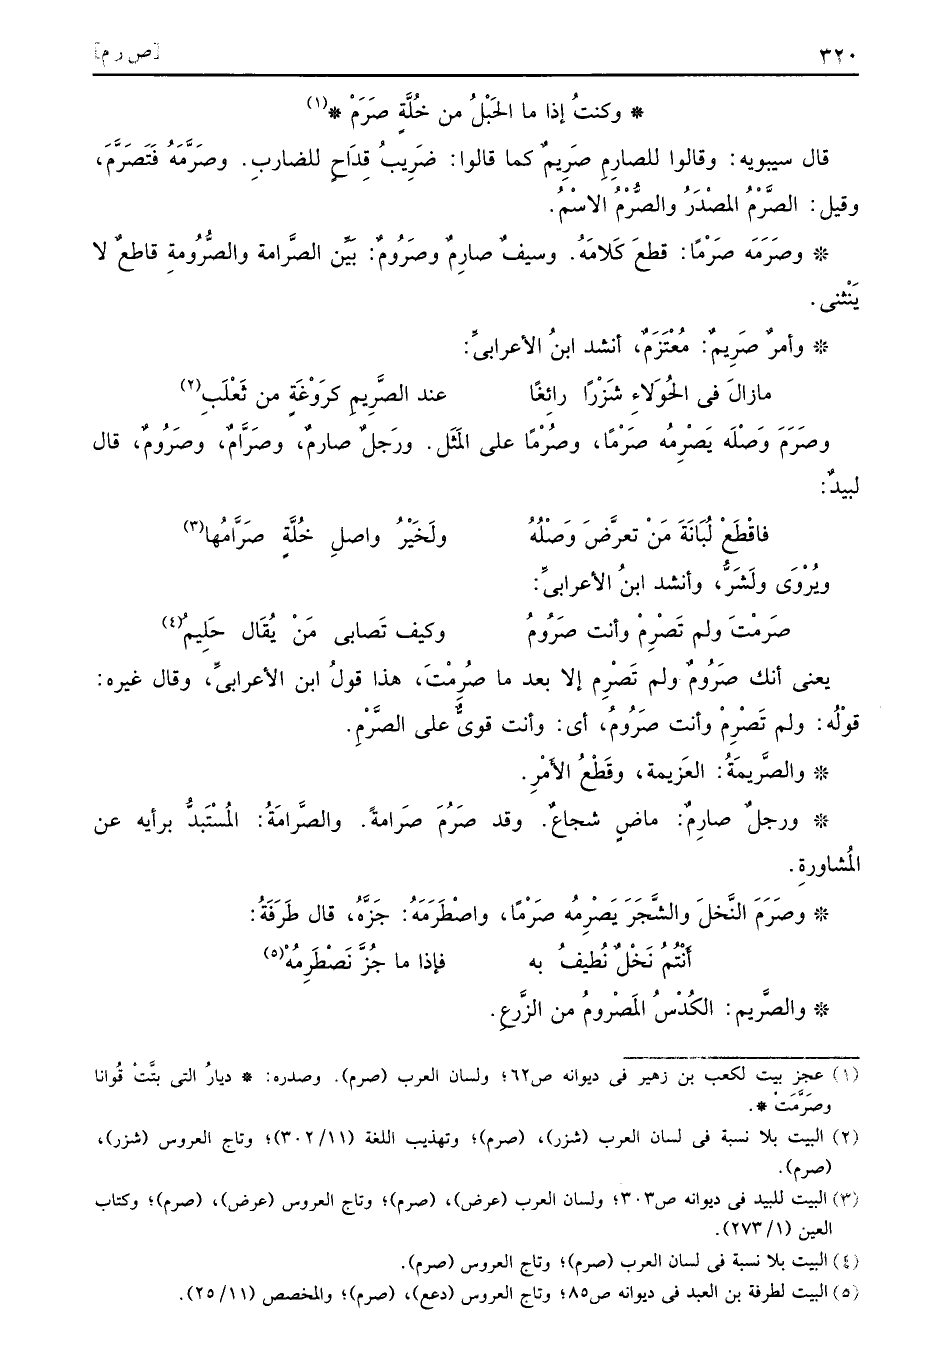 ٣٢٠ [ص ر م]
* وكنتُ إذا ما الحَبْلُ من خُلَّةٍ صَرَمْ *(١)
قال سيبويه: وقالوا للصارِمِ صَرِيمٌ كما قالوا: ضَرِيبُ قِدَاحٍ للضارِبِ. وصَرَّمَهُ فَتَصَرَّمَ،
وقيل: الصَّرْمُ المصْدَرُ والصُّرْمُ الاسْمُ.
* وصَرَمَه صَرْمًا: قطعَ كَلامَهُ. وسيفٌ صارِمٌ وصَرُومٌ: بَيِّن الصَّرامة والصُّرُومةِ قاطعٌ لا
يَنْثنى.
* وأمرٌ صَرِيمٌ: مُعْتَزَمٌ، أنشد ابنُ الأعرابىِّ:
مازالَ فى الحُوَلاءِ شَزْرًا رائغًا عند الصَّرِيمِ كرَوْغَةٍ من ثَعْلَبِ(٢)
وصَرَمَ وَصْلَه يَصْرِمُه صَرْمًا، وصُرْمًا على المَثَل. ورَجلٌ صارمٌ، وصَرَّامٌ، وصَرُومٌ، قال
لبيدٌ:
فاقْطَعْ لُبَانَةَ مَنْ تعرَّضَ وَصْلُهُ ولَخَيْرُ واصلِ خُلَّةٍ صَرَّامُها(٣)
ويُرْوَى ولَشَرُّ، وأنشد ابنُ الأعرابىِّ:
صَرَمْتَ ولم تَصْرِمْ وأنت صَرُومُ وكيف تَصابى مَنْ يُقَال حَلِيمُ(٤)
يعنى أنك صَرُومٌ ولم تَصْرِم إلا بعد ما صُرِمْتَ، هذا قولُ ابن الأعرابىِّ، وقال غيره:
قوْلُه: ولم تَصْرِمْ وأنت صَرُومُ، أى: وأنت قوىٌّ على الصَّرْمِ.
* والصَّرِيمَةُ: العَزيمة، وقَطْعُ الأَمْرِ.
* ورجلٌ صارِمٌ: ماضٍ شجاعٌ. وقد صَرُمَ صَرامةً. والصَّرامَةُ: المُسْتَبَدُّ برأيه عن
المُشاورةِ.
* وصَرَمَ النَّخلَ والشَّجَرَ يَصْرِمُه صَرْمًا، واصْطَرَمَهُ: جَزَّهُ، قال طَرَفَةُ:
أَنْتُمُ نَخْلٌ نُطيفُ به فإذا ما جُزَّ نَصْطَرِمُهْ(٥)
* والصَّريم: الكُدْسُ المَصْرومُ من الزَّرعِ.
(١) عجز بيت لكعب بن زهير فى ديوانه ص٦٢؛ ولسان العرب (صرم). وصدره: * ديارُ التى بتَّتْ قُوانا
وصَرَّمَتْ *.
(٢) البيت بلا نسبة فى لسان العرب (شزر)، (صرم)؛ وتهذيب اللغة (٣٠٢/١١)؛ وتاج العروس (شزر)،
(صرم).
(٣) البيت للبيد فى ديوانه ص٣٠٣؛ ولسان العرب (عرض)، (صرم)؛ وتاج العروس (عرض)، (صرم)؛ وكتاب
العين (٢٧٣/١).
(٤) البيت بلا نسبة فى لسان العرب (صرم)؛ وتاج العروس (صرم).
(٥) البيت لطرفة بن العبد فى ديوانه ص٨٥؛ وتاج العروس (دعع)، (صرم)؛ والمخصص (٢٥/١١).